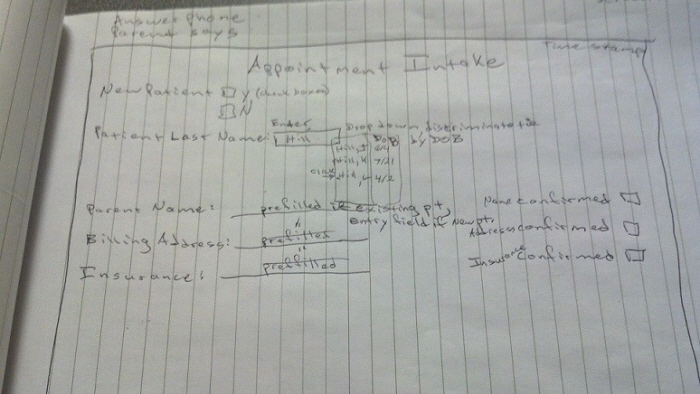 Answer phone
Parent says
Time stamp
Appointment Intake
New Patient Y (check boxes)
N
Enter
Patient Last Name: Hill Drop down, discriminate
DOB by DOB
Hill, J
Hill, K 7/21
click → Hill, L 4/2
Parent Name: prefilled if existing pt, Name confirmed
" Entry field if new pt.
Billing Address: prefilled Address confirmed
"
Insurance: prefilled Insurance Confirmed